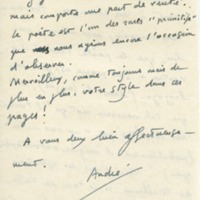 mais comporte une part de vérité.
le poète est l'un des rares "primitifs"
que nous ayions encore l'occasion
d'observer.
Merveilleux, comme toujours mais de
plus en plus, votre style dans ces
pages !
A vous deux bien affectueuse-
ment.
André